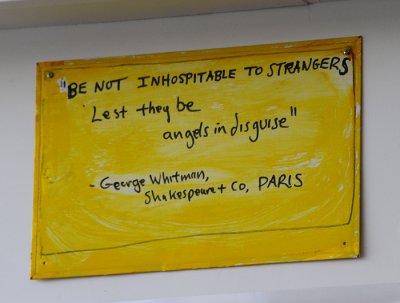 "BE NOT INHOSPITABLE TO STRANGERS
Lest they be
angels in disguise"
- George Whitman,
Shakespeare + Co, PARIS